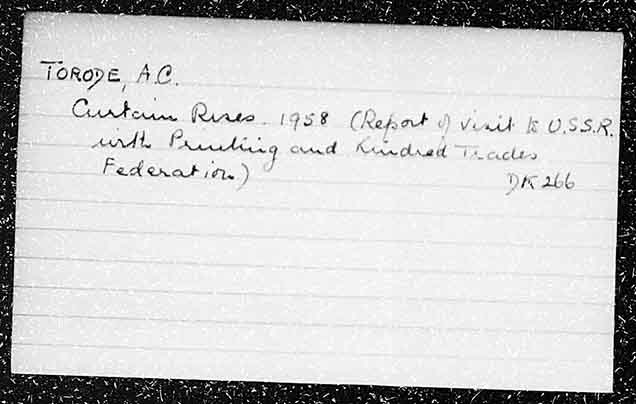 TORODE, A.C.
Curtain Rises. 1958 (Report of visit to U.S.S.R.
with Printing and Kindred Trades
Federation)
DK 266